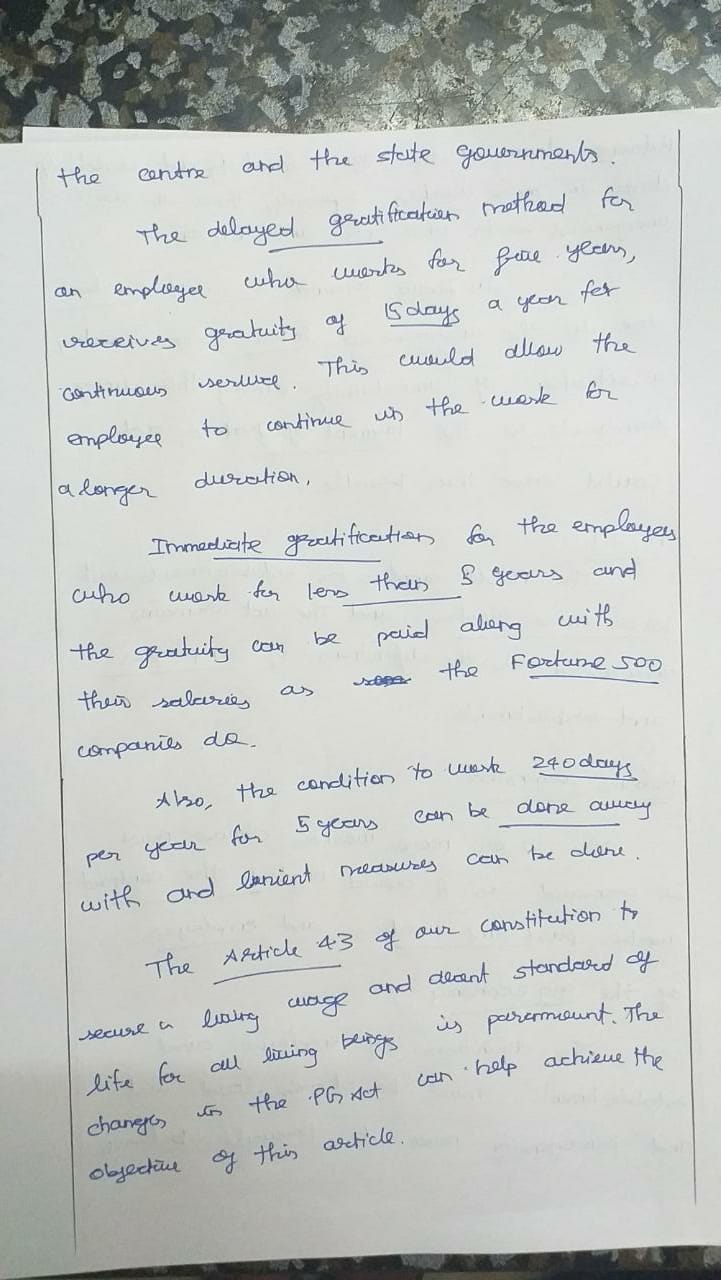 the centre and the state governments.
The delayed gratification method for
an employee who works for five years,
receives gratuity of 15 days a year for
continuous service. This would allow the
employee to continue in the work for
a longer duration.
Immediate gratification for the employees
who work for less than 5 years and
the gratuity can be paid along with
their salaries as the Fortune 500
companies do.
Also, the condition to work 240 days
per year for 5 years can be done away
with and lenient measures can be done.
The Article 43 of our constitution to
secure a living wage and decent standard of
life for all living beings is paramount. The
changes in the PG Act can help achieve the
objective of this article.